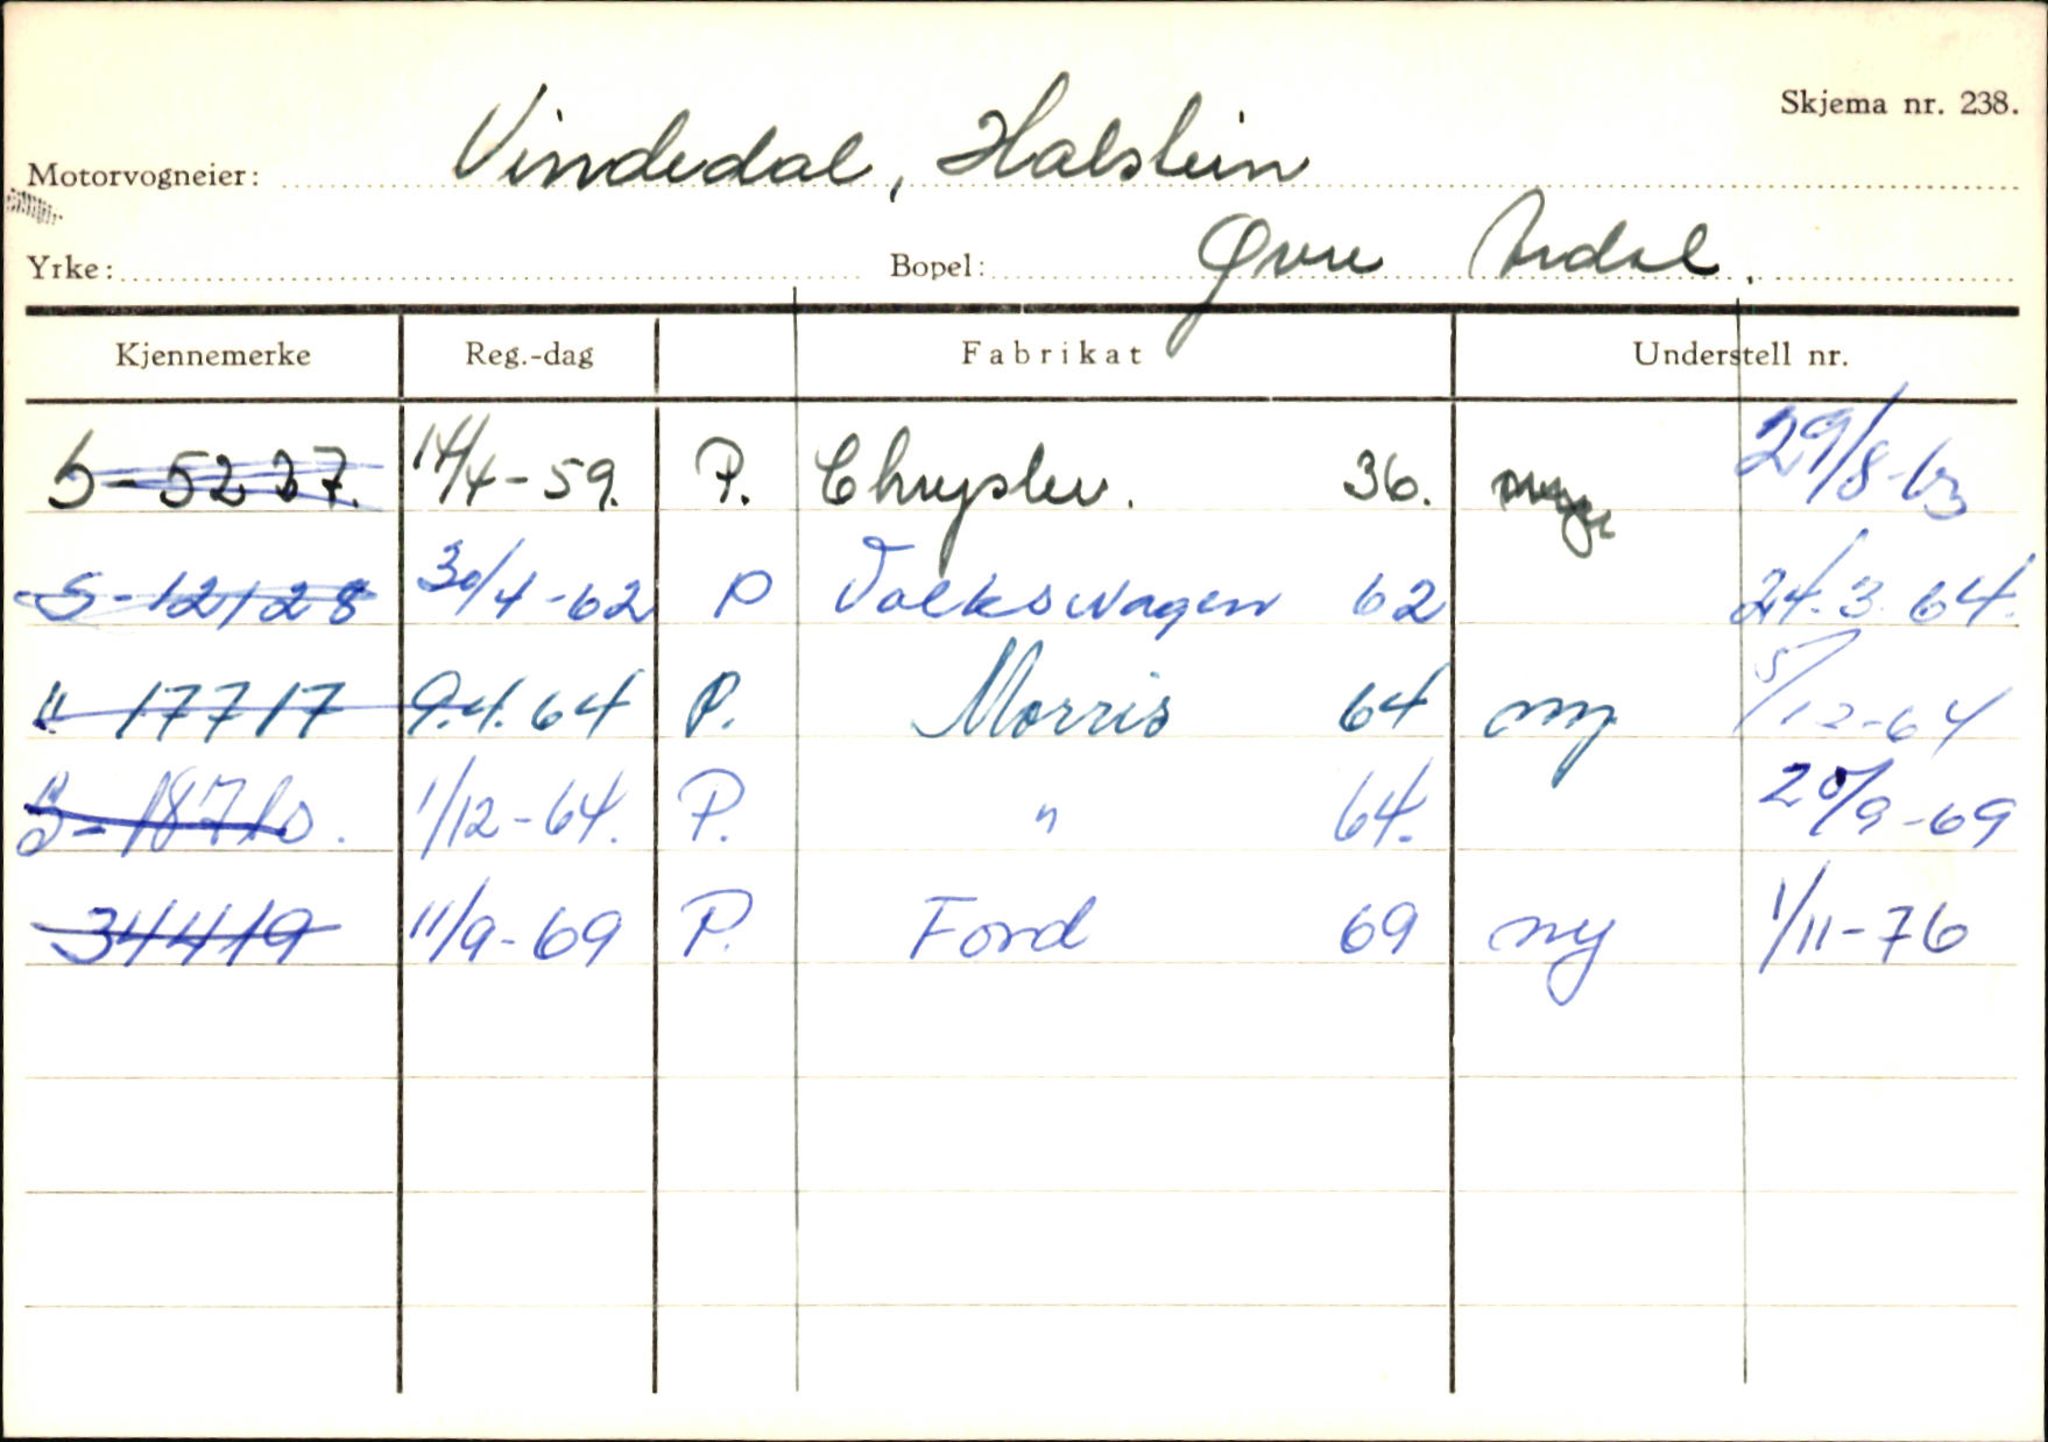 Skjema nr. 238.
Motorvogneier: Vindedal, Halstein
Yrke: Bopel: Øvre Årdal.
Kjennemerke Reg.-dag Fabrikat Understell nr.
S-5237. 14/4-59. P. Chrysler. 36. 29/8-63
S-12128 30/4-62 P Volkswagen 62 24.3.64.
" 17717 9.4.64 P. Morris 64 ny 5/12-64
S-18710. 1/12-64. P. " 64. 20/9-69
34419 11/9-69 P. Ford 69 ny 1/11-76